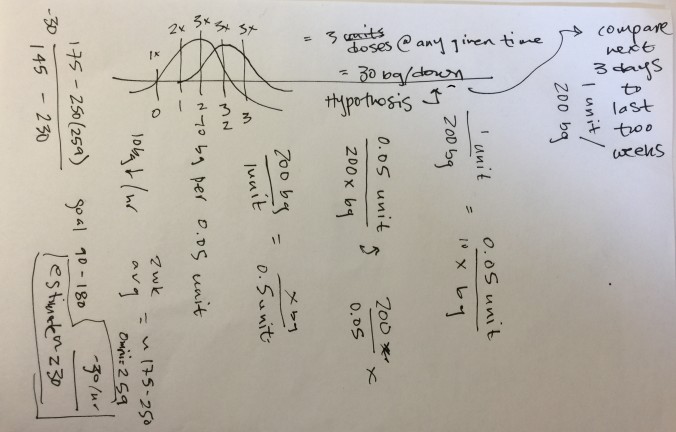 1x 2x 3x 3x 3x
0 1 2 3 3
2
= 3 units
doses @ any given time
= 30 bg/down
Hypothosis
compare
next
3 days
to
last
two
weeks
1 unit/
200 bg
1 unit
200bg
=
0.05 unit
10 x bg
0.05 unit
200x bg
200
0.05
x
200 bg
1unit
=
x bg
0.5unit
→ 10 bg per 0.05 unit
10bg↓/hr
2wk
avg = ~ 175-250
omni=259
175 - 250(259)
-30
145 - 230
goal 90-180
-30/hr
estimate ~ 230